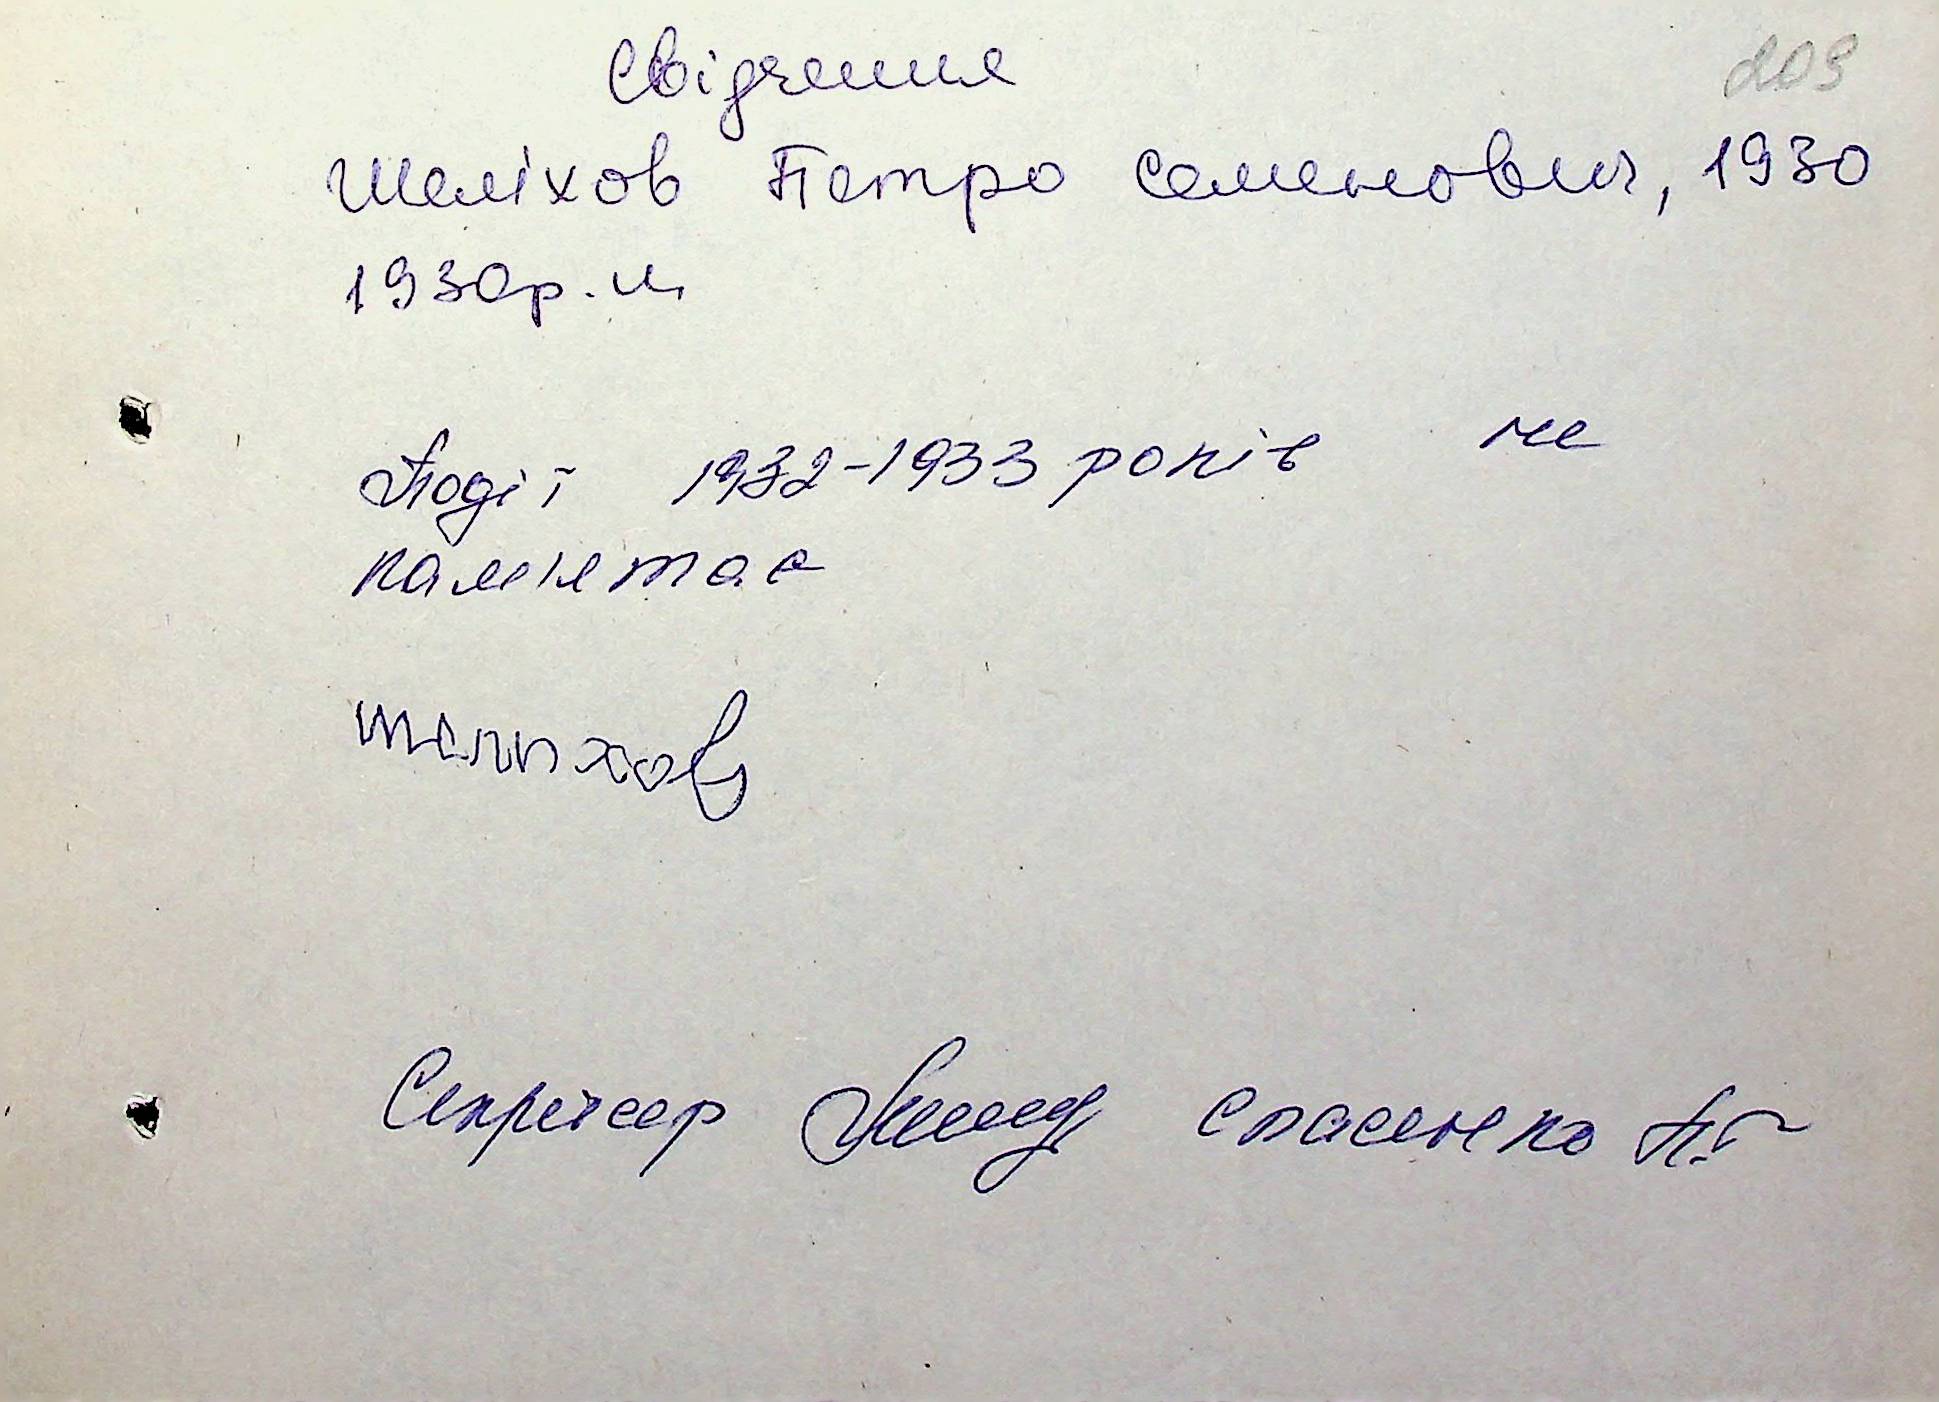 209
Свідчення
Шеліхов Петро Семенович, 1930
1930р.н.
Події 1932-1933 років не
пам'ятає
Шеліхов
Секретар Спасенко П.Г